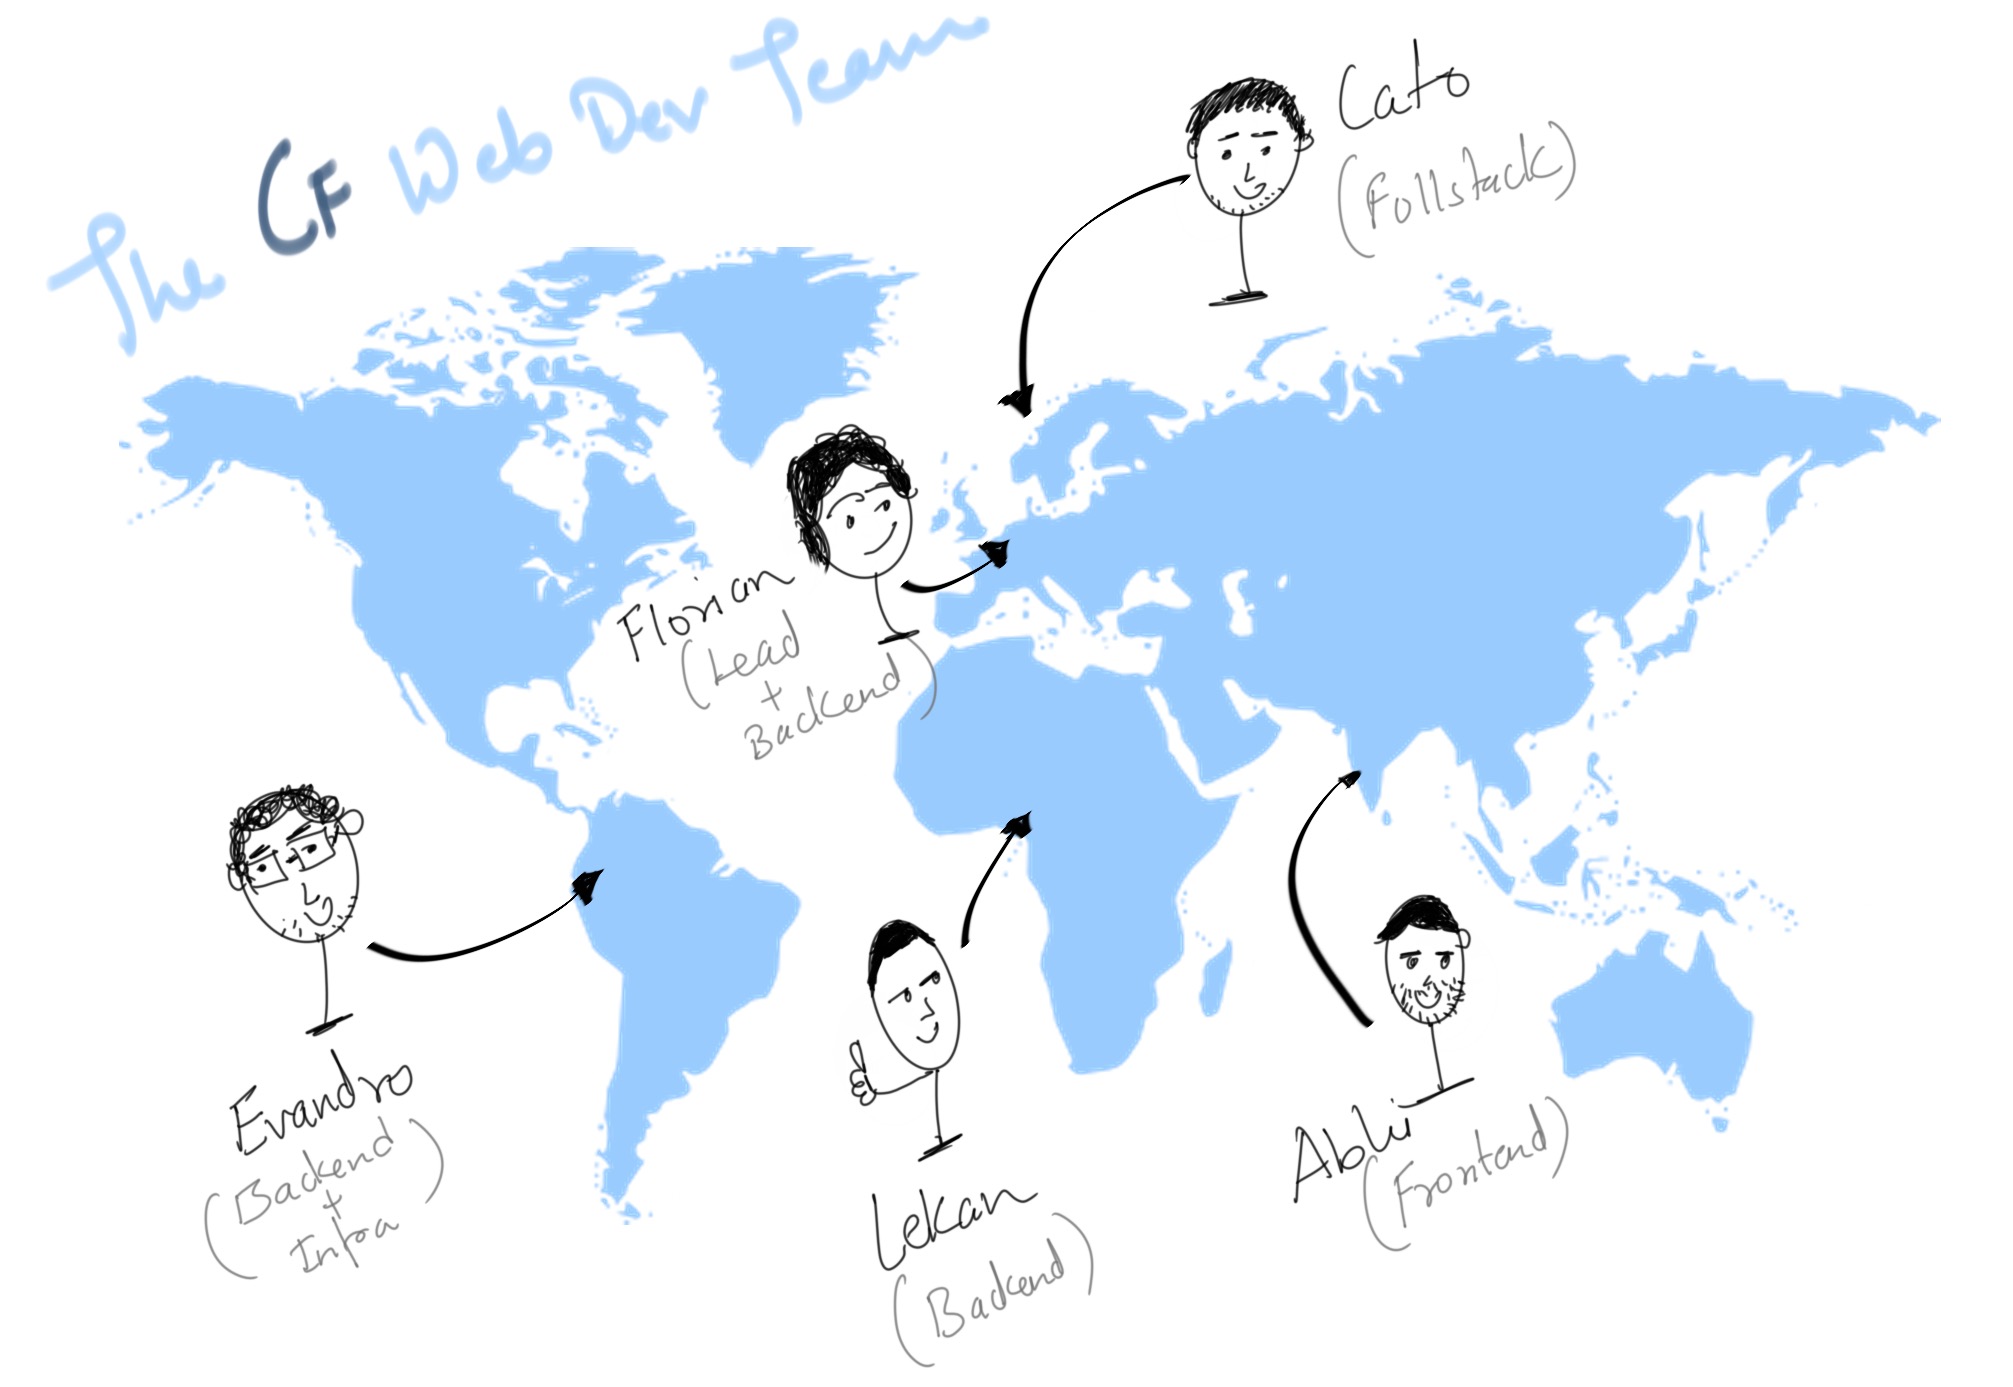 The CF Web Dev Team
Cato
(Fullstack)
Florian
(Lead
+
Backend)
Evandro
(Backend
+
Infra)
Lekan
(Backend)
Abhi
(Frontend)